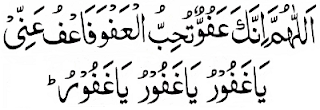 اَللّٰهُمَّ اِنَّكَ عَفُوٌّ تُحِبُّ الْعَفْوَ فَاعْفُ عَنِّیْ
یَا غَفُوْرُ یَا غَفُوْرُ یَا غَفُوْرُ ؕ